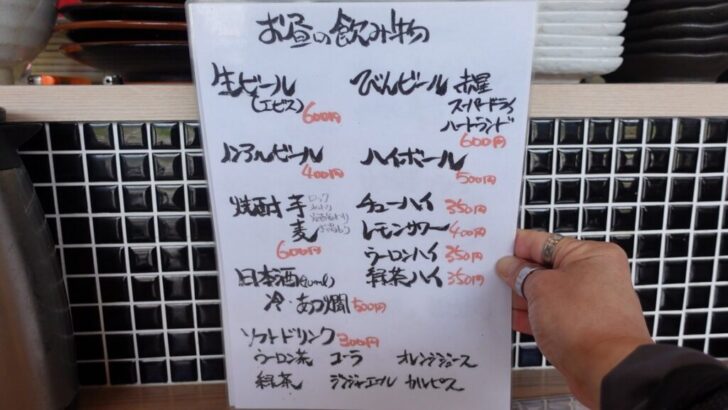 お昼の飲み物
生ビール
(エビス) 600円
びんビール 赤星
スーパードライ
ハートランド
600円
ノンアルビール
400円
ハイボール
500円
焼酎 芋
麦
600円
ロック
水わり
お湯わり
チューハイ 350円
レモンサワー 400円
ウーロンハイ 350円
緑茶ハイ 350円
日本酒
冷・あつ燗 500円
ソフトドリンク 300円
ウーロン茶 コーラ オレンジジュース
緑茶 ジンジャエール カルピス